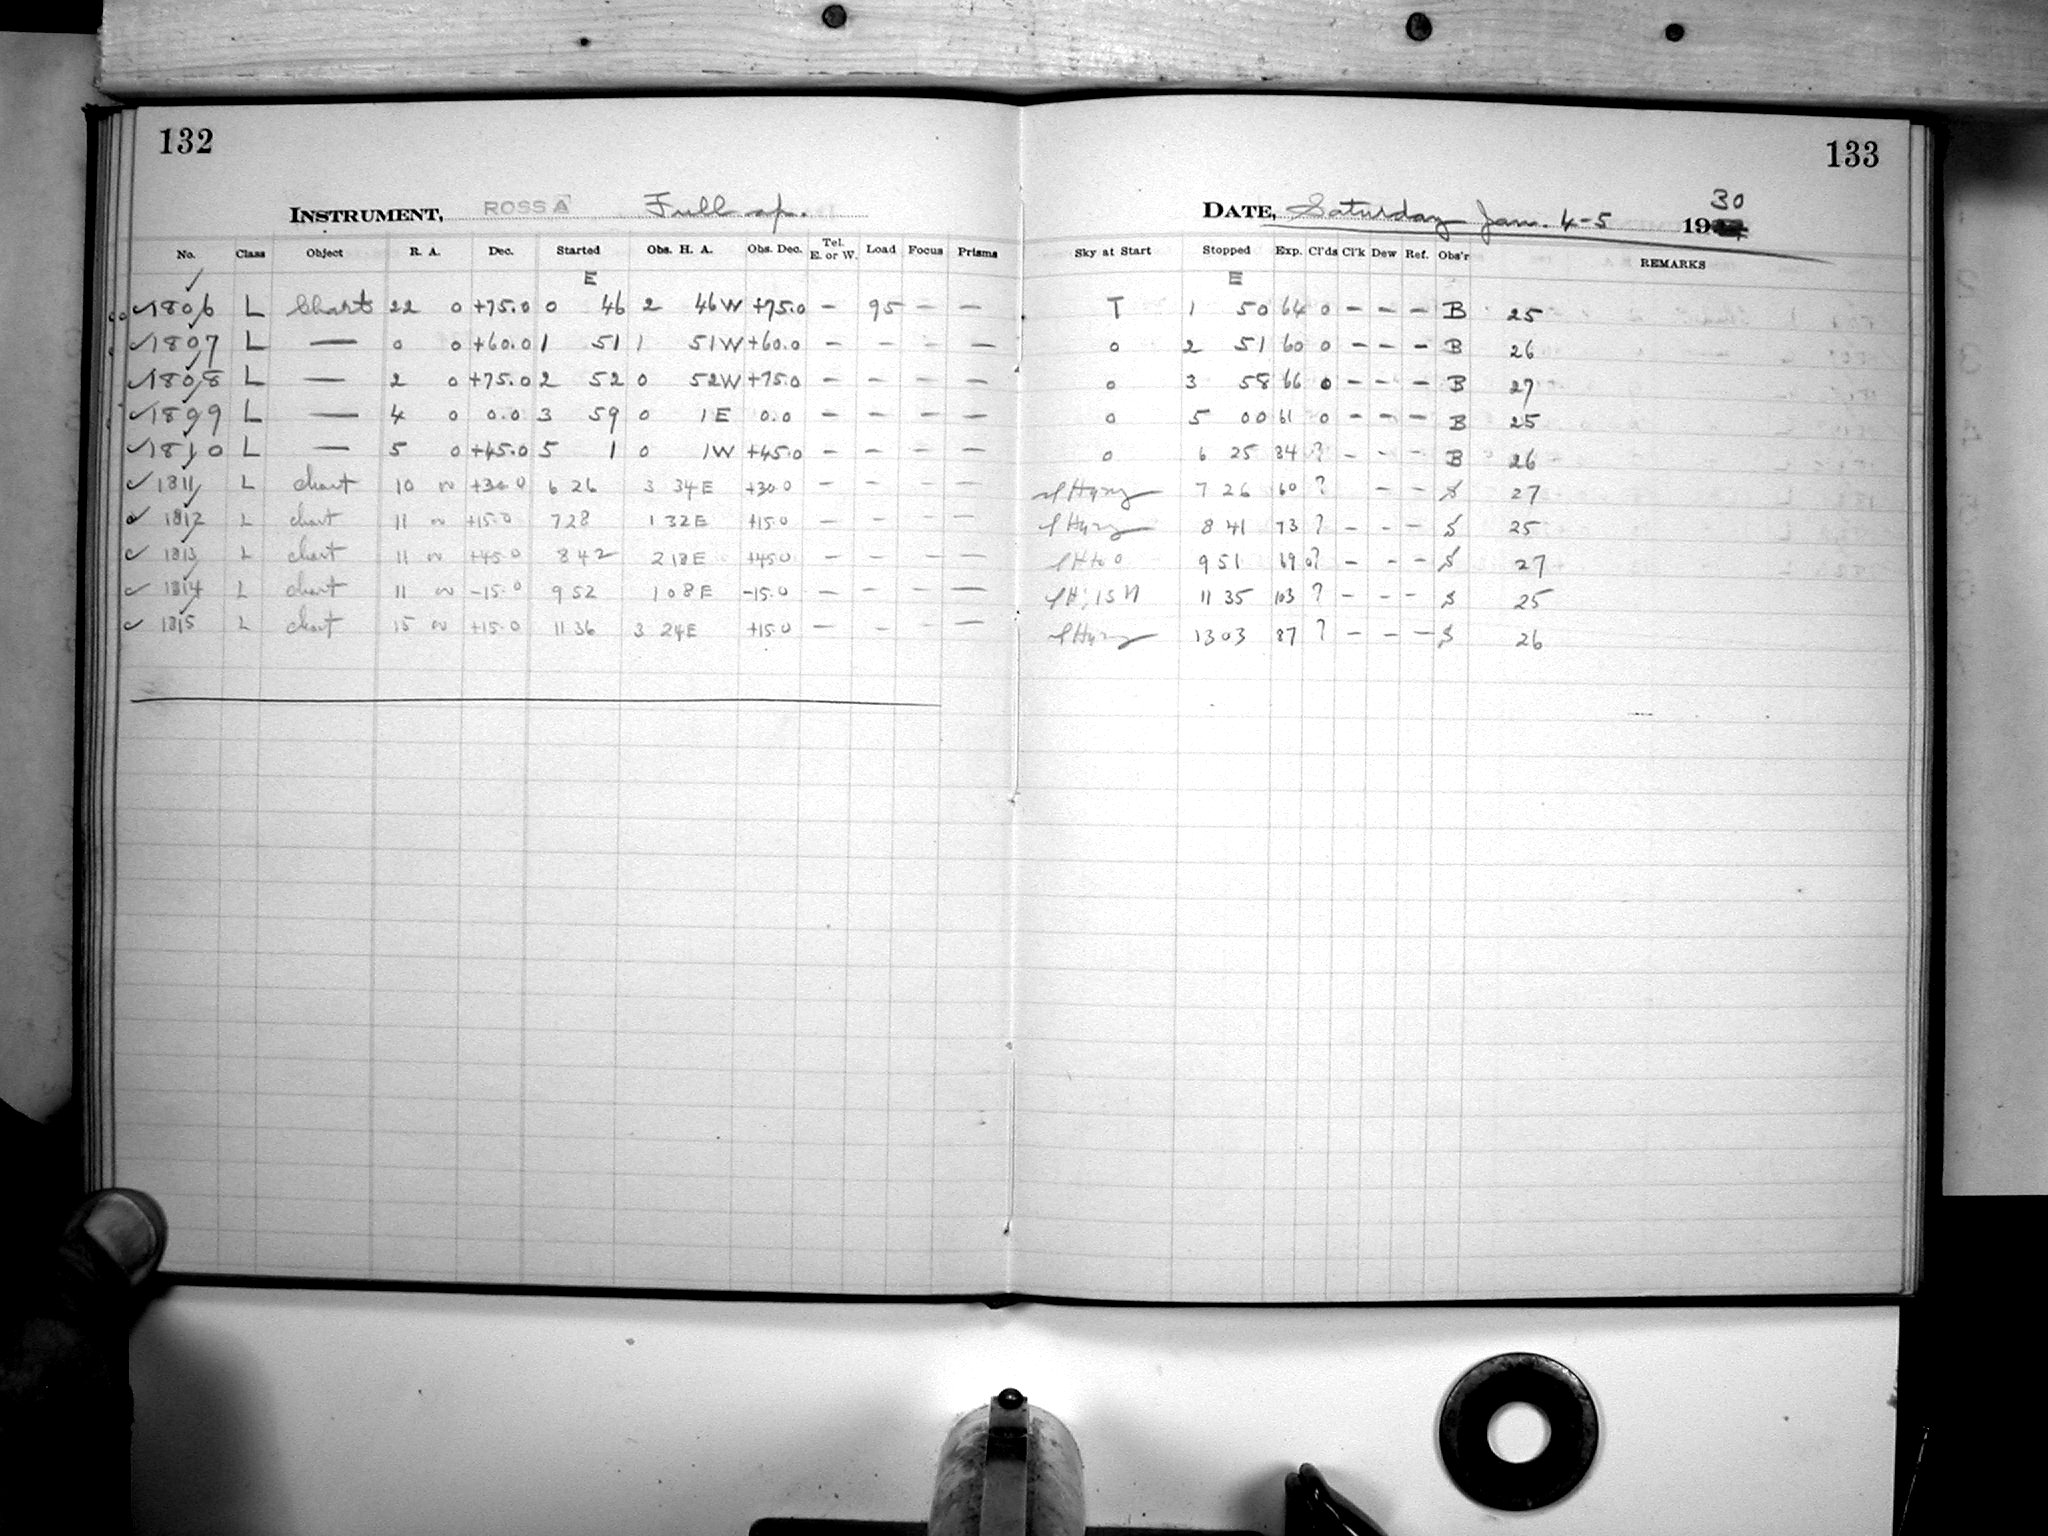 132
133
INSTRUMENT, ROSS A Full ap.
DATE, Saturday Jan. 4-5 30 19
No. Class Object R. A. Dec. Started Obs. H. A. Obs. Dec. Tel. E. or W. Load Focus Prisms Sky at Start Stopped Exp. Cl'ds Cl'k Dew Ref. Obs'r REMARKS
E E
✓1806 L Chart 22 0 +75.0 0 46 2 46W +75.0 – 95 – – T 1 50 64 0 – – – B 25
✓1807 L — 0 0 +60.0 1 51 1 51W +60.0 – – – – 0 2 51 60 0 – – – B 26
✓1808 L — 2 0 +75.0 2 52 0 52W +75.0 – – – – 0 3 58 66 0 – – – B 27
✓1809 L — 4 0 0.0 3 59 0 1E 0.0 – – – – 0 5 00 61 0 – – – B 25
✓1810 L — 5 0 +45.0 5 1 0 1W +45.0 – – – – 0 6 25 84 ? – – – B 26
✓1811 L chart 10 +30.0 6 26 3 34E +30.0 – – – – 7 26 60 ? – – S 27
✓1812 L chart 11 +15.0 7 28 1 32E +15.0 – – – – 8 41 73 ? – – – S 25
✓1813 L chart 11 +45.0 8 42 2 18E +45.0 – – – – 9 51 69 0? – – – S 27
✓1814 L chart 11 -15.0 9 52 1 08E -15.0 – – – – 11 35 103 ? – – – S 25
✓1815 L chart 15 +15.0 11 36 3 24E +15.0 – – – – 13 03 87 ? – – – S 26